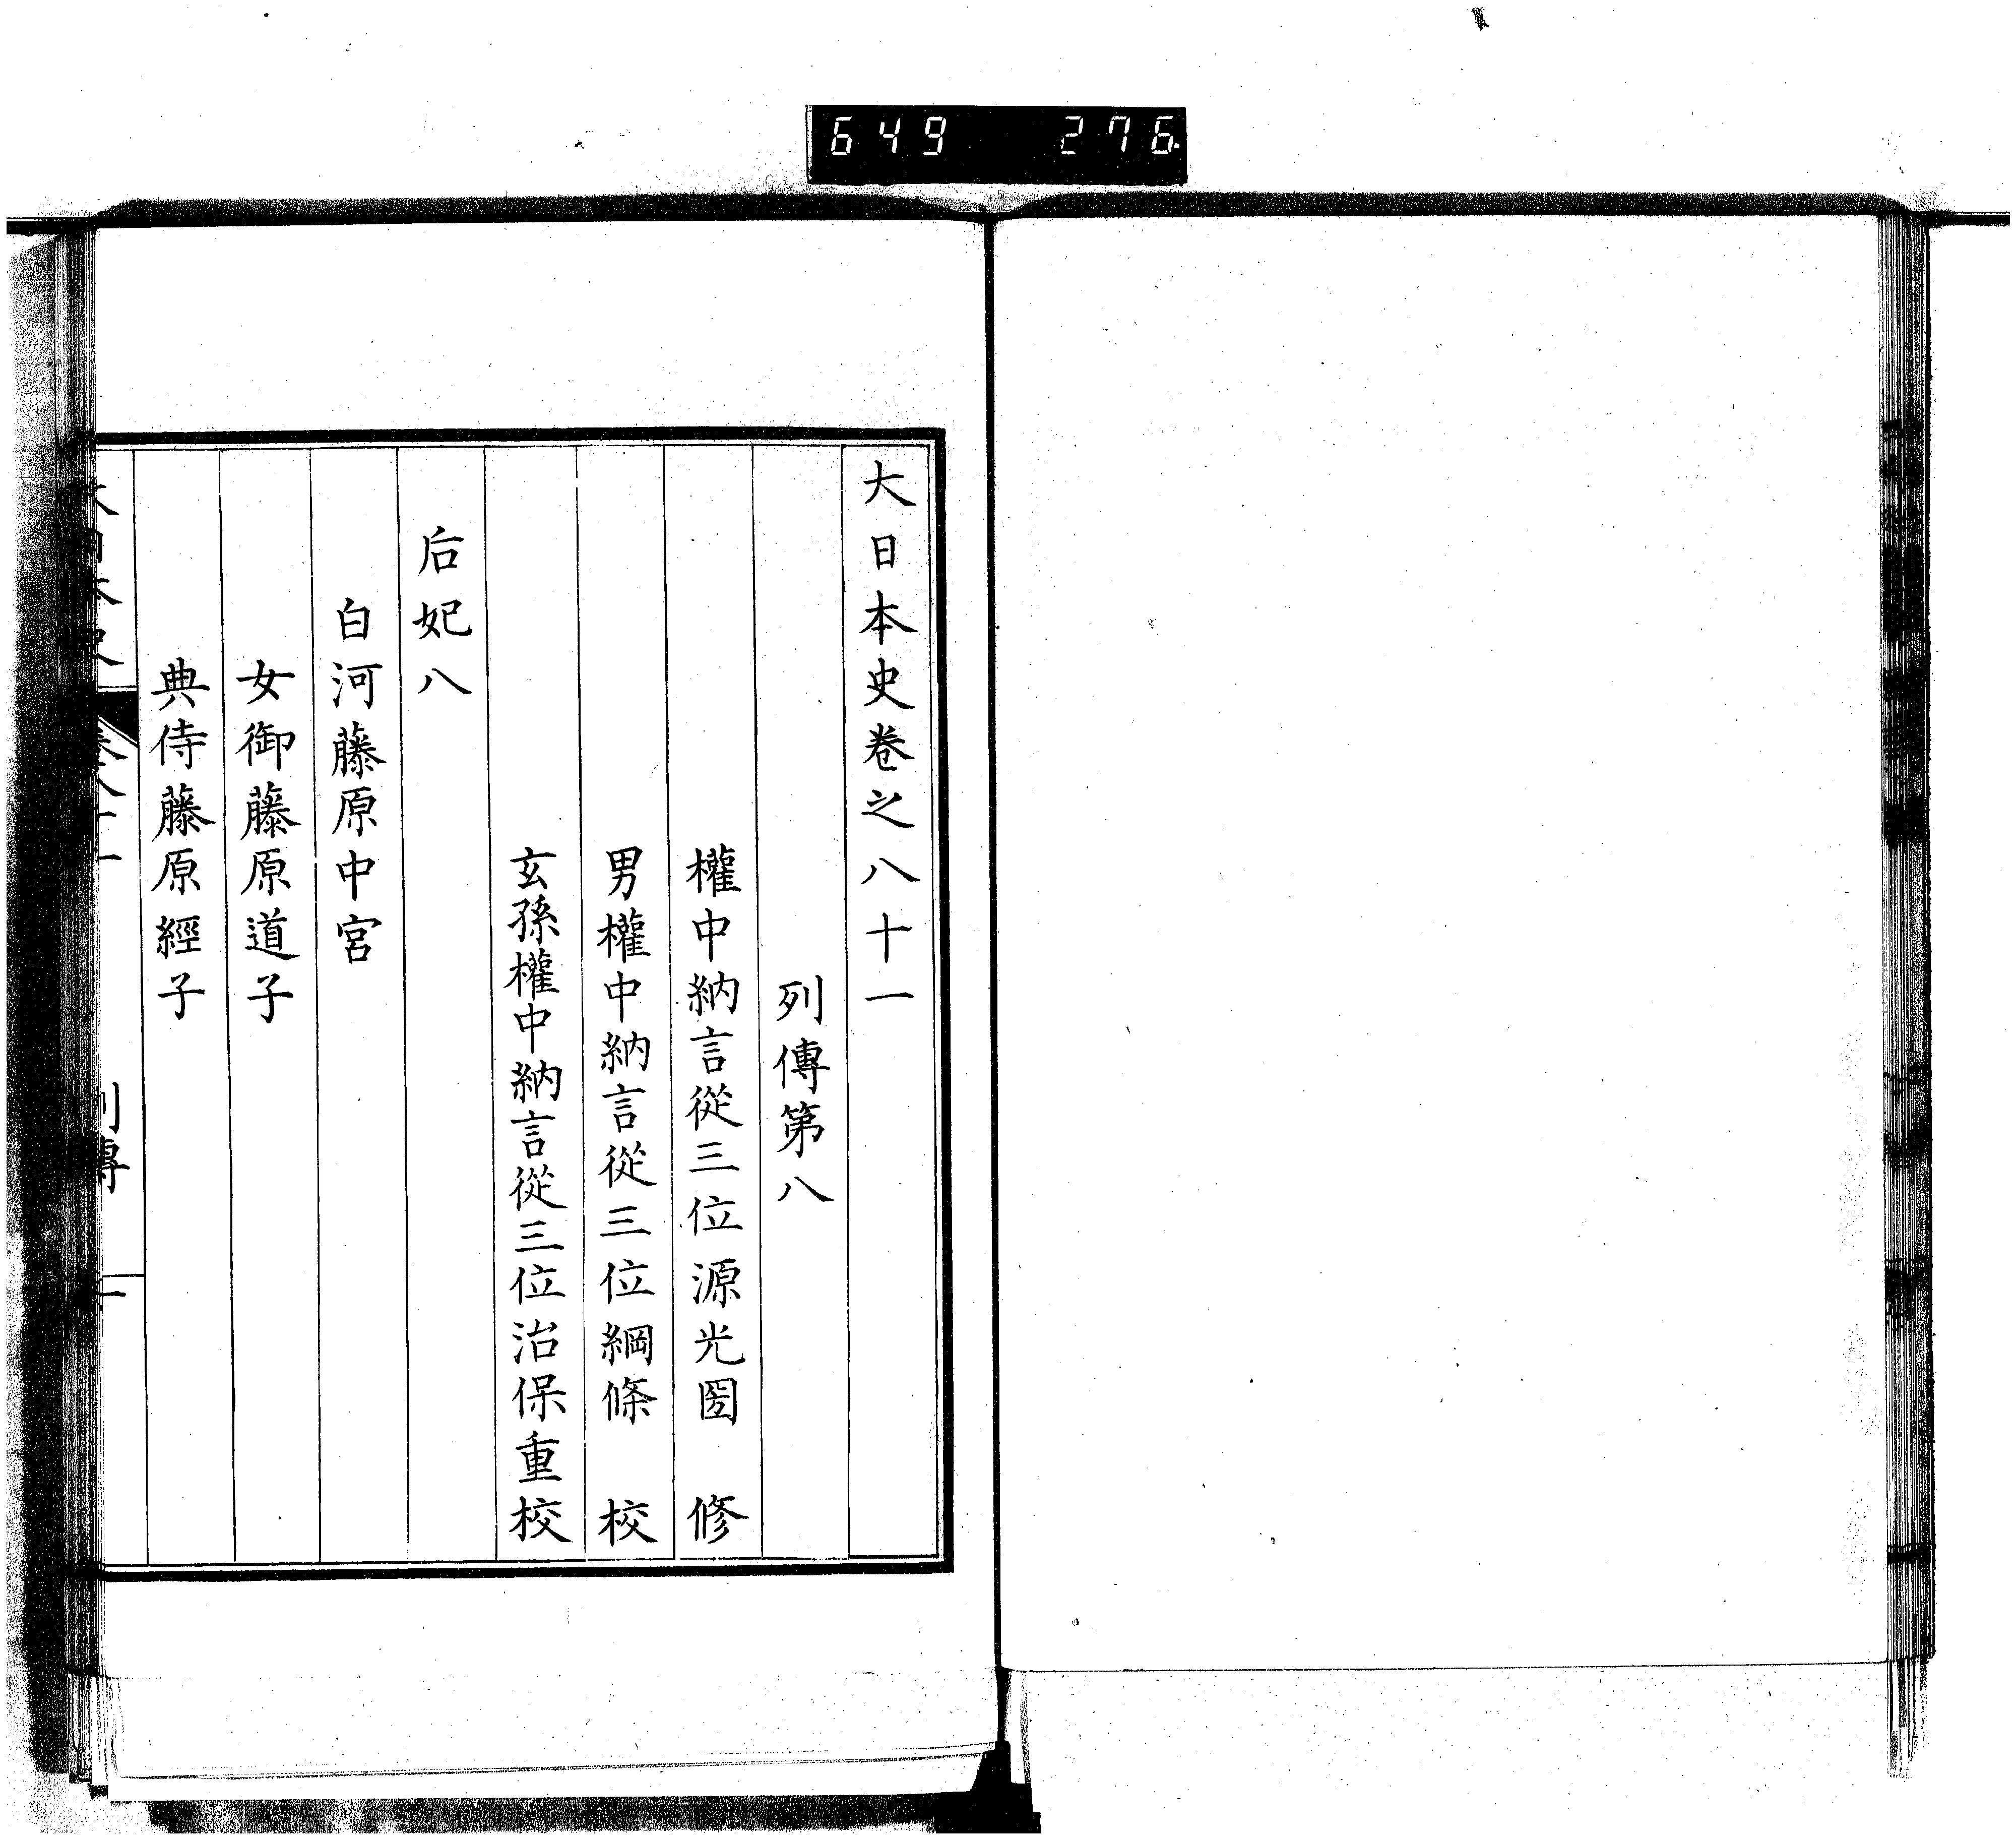 649 276
大日本史卷之八十一
列傳第八
權中納言從三位源光圀 修
男權中納言從三位綱條 校
玄孫權中納言從三位治保重校
后妃八
白河藤原中宮
女御藤原道子
典侍藤原經子